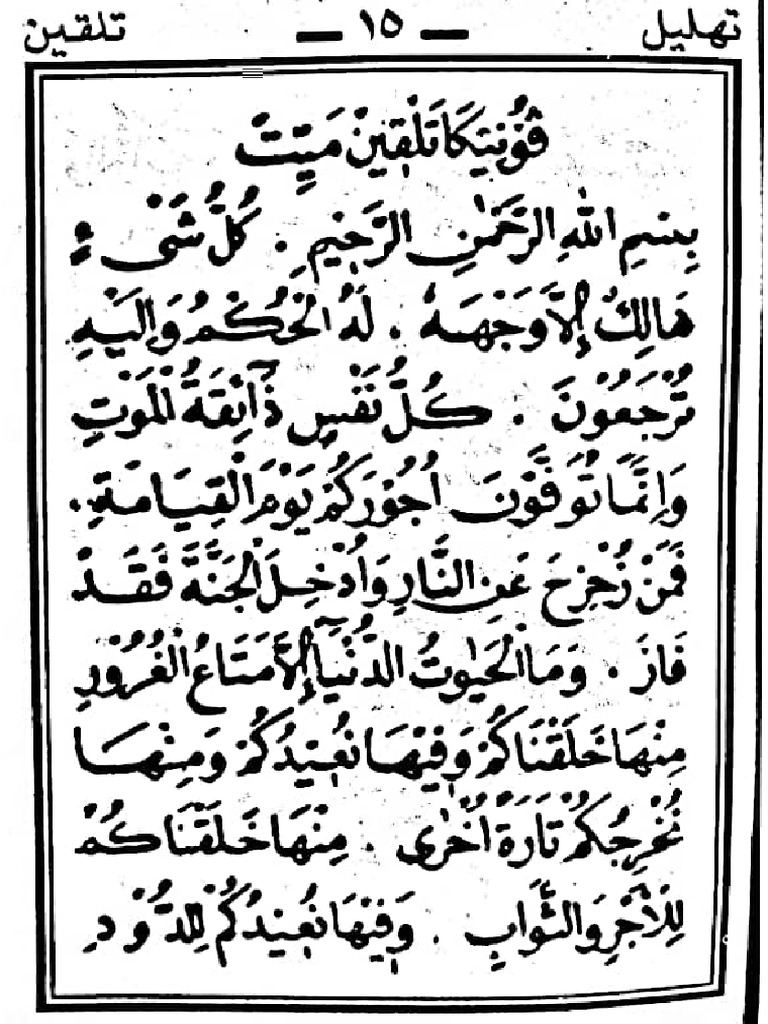 تهليل — ١٥ — تلقين
ڤُوْنِيْكَا تَلْقِيْنْ مَيِّتْ
بِسْمِ اللهِ الرَّحْمٰنِ الرَّحِيْمِ . كُلُّ شَىْءٍ
هَالِكٌ إِلَّا وَجْهَهُ . لَهُ الْحُكْمُ وَإِلَيْهِ
تُرْجَعُوْنَ . كُلُّ نَفْسٍ ذَآئِقَةُ الْمَوْتِ
وَإِنَّمَا تُوَفَّوْنَ اُجُوْرَكُمْ يَوْمَ الْقِيَامَةِ .
فَمَنْ زُحْزِحَ عَنِ النَّارِ وَاُدْخِلَ الْجَنَّةَ فَقَدْ
فَازَ . وَمَا الْحَيٰوةُ الدُّنْيَآ إِلَّا مَتَاعُ الْغُرُوْرِ
مِنْهَا خَلَقْنَاكُمْ وَفِيْهَا نُعِيْدُكُمْ وَمِنْهَا
نُخْرِجُكُمْ تَارَةً اُخْرٰى . مِنْهَا خَلَقْنَاكُمْ
لِلْأَجْرِ وَالثَّوَابِ . وَفِيْهَا نُعِيْدُكُمْ لِلدُّوْدِ